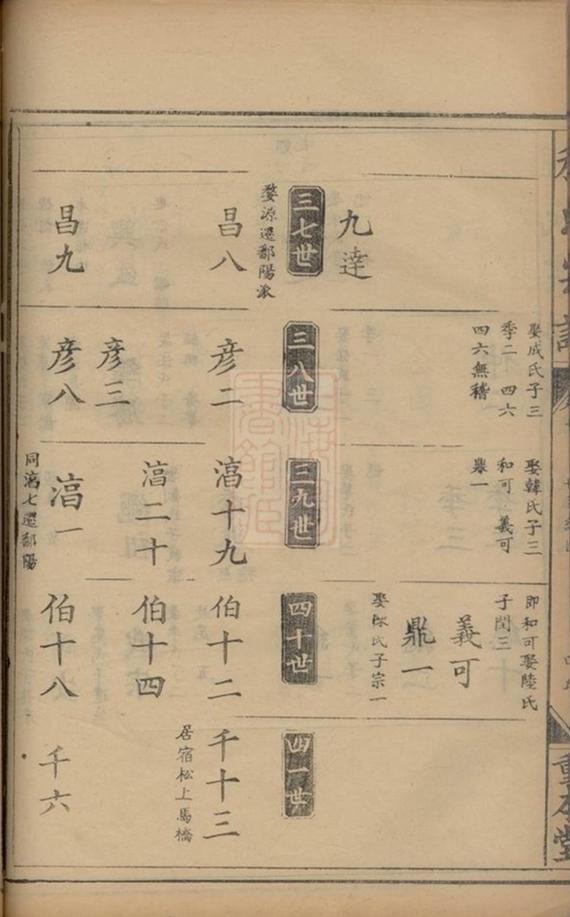 九達
三七世
婺源遷鄱陽派
昌八
昌九
娶成氏子三
季二 四六
四六無稽
三八世
彦二
彦三
彦八
娶韓氏子三
和可 義可
鼎一
三九世
滈十九
滈二十
滈一
同滈七遷鄱陽
即和可娶陸氏
子閏三
義可
鼎一
娶陈氏子宗一
四十世
伯十二
伯十四
伯十八
四一世
千十三
居宿松上馬橋
千六